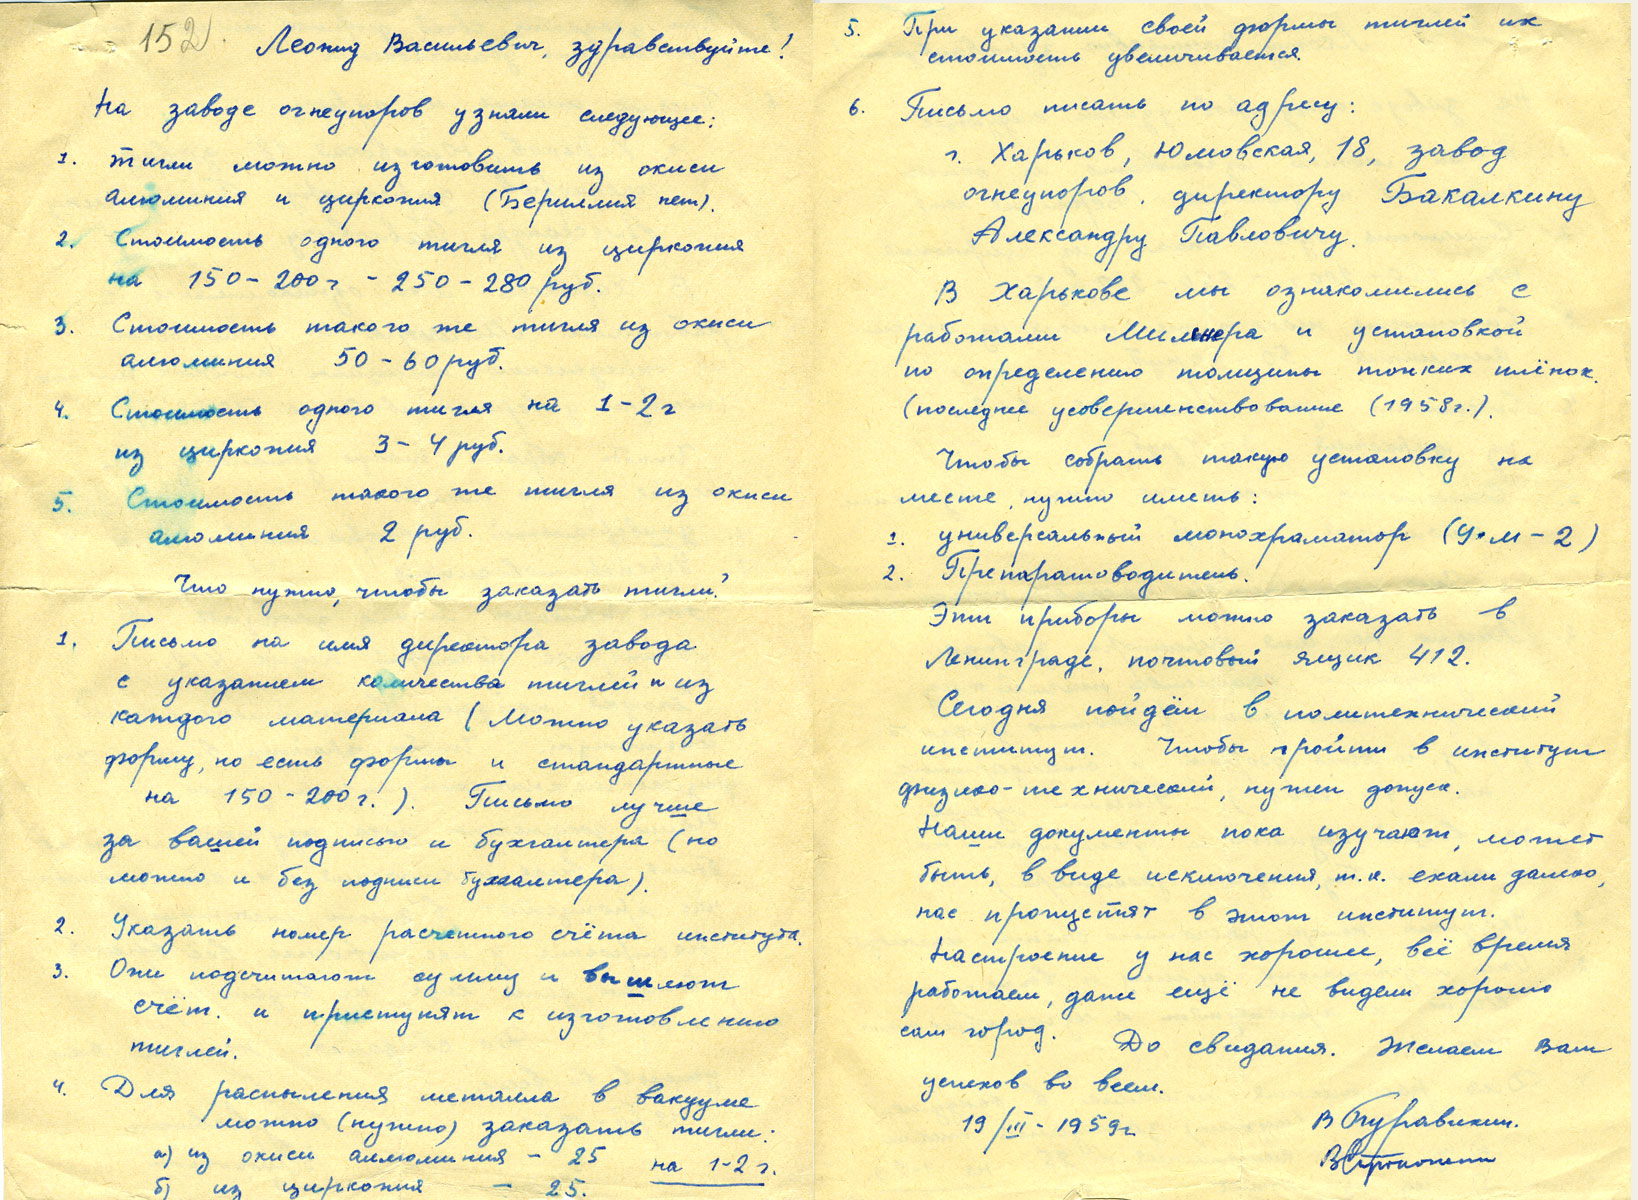 152.
Леонид Васильевич, здравствуйте!
На заводе огнеупоров узнали следующее:
1. Тигли можно изготовить из окиси
алюминия и циркония (Бериллия нет).
2. Стоимость одного тигля из циркония
на 150-200г - 250-280 руб.
3. Стоимость такого же тигля из окиси
алюминия 50-60 руб.
4. Стоимость одного тигля на 1-2г
из циркония 3-4 руб.
5. Стоимость такого же тигля из окиси
алюминия 2 руб.
Что нужно, чтобы заказать тигли?
1. Письмо на имя директора завода
с указанием количества тиглей и из
каждого материала (Можно указать
форму, но есть формы и стандартные
на 150-200г.). Письмо лучше
за вашей подписью и бухгалтера (но
можно и без подписи бухгалтера).
2. Указать номер расчетного счёта института.
3. Они подсчитают сумму и вышлют
счёт. и приступят к изготовлению
тиглей.
4. Для распыления металла в вакууме
можно (нужно) заказать тигли:
а) из окиси алюминия - 25 на 1-2 г.
б) из циркония - 25.
5. При указании своей формы тиглей их
стоимость увеличивается.
6. Письмо писать по адресу:
г. Харьков, Юмовская, 18, завод
огнеупоров, директору Бакалкину
Александру Павловичу.
В Харькове мы ознакомились с
работами Милнера и установкой
по определению толщины тонких плёнок.
(последнее усовершенствование (1958г.).
Чтобы собрать такую установку на
месте, нужно иметь:
1. универсальный монохраматор (У.М-2)
2. Препаратоводитель.
Эти приборы можно заказать в
Ленинграде, почтовый ящик 412.
Сегодня пойдём в политехнический
институт. Чтобы пройти в институт
физико-технический, нужен допуск.
Наши документы пока изучают, может
быть, в виде исключения, т.к. ехали далеко,
нас пропустят в этот институт.
Настроение у нас хорошее, всё время
работаем, даже ещё не видели хорошо
сам город. До свидания. Желаем Вам
успехов во всем.
19/III-1959г